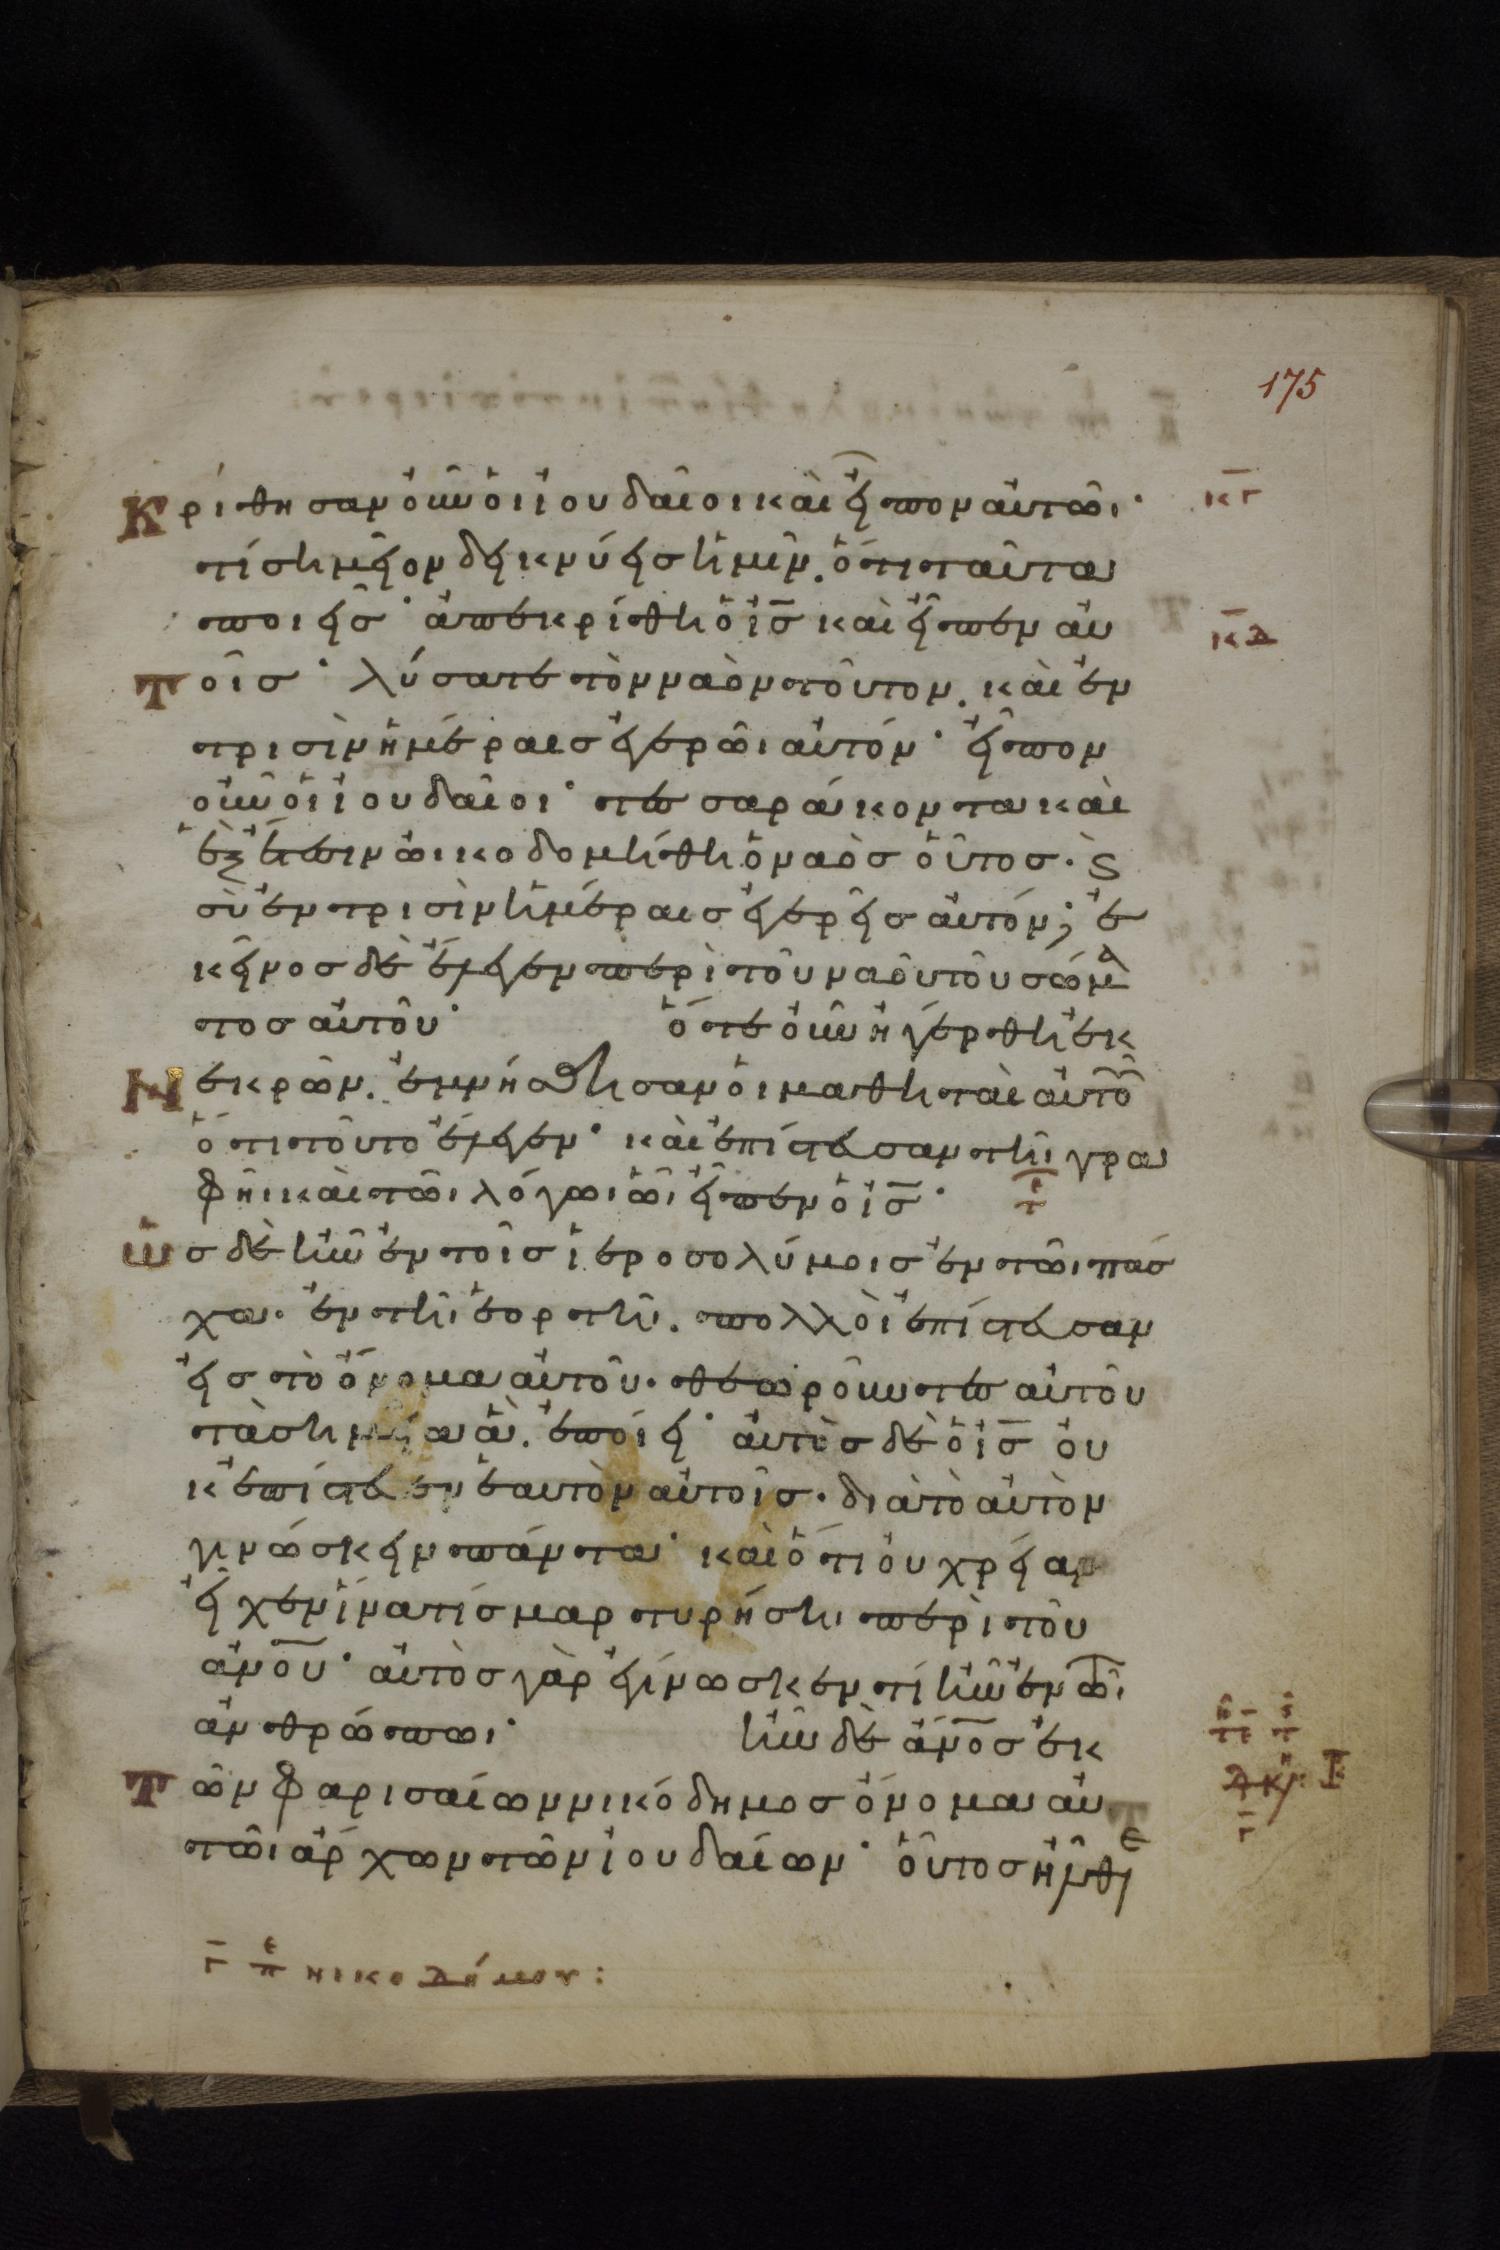 175
Κρίθησαν οὖν ὁι ἰουδαῖοι καὶ εἶπον αὐτῶι· κγ
τί σημεῖον δεικνύεισ ἡμῖν. ὅτι ταῦτα
ποιεῖσ· ἀπεκρίθη ὁ ἰσ̅ καὶ εἶπεν αὐ
τοῖσ· λύσατε τὸν ναὸν τοῦτον. καὶ ἐν κδ
τρισὶν ἡμέραις ἐγερῶι αὐτόν· εἶπον
οὖν ὁι ἰουδαῖοι· τεσσαράκοντα καὶ
ἒξ ἔτεσιν ὠικοδομήθη ὁ ναὸσ οὗτοσ· ϗ
σὺ ἐν τρισὶν ἡμέραισ ἐγερεῖσ αὐτόν; ἐ
κεῖνοσ δὲ ἔλεγεν περὶ τοῦ ναοῦ τοῦ σώμα
τοσ αὐτοῦ· ὅτε οὖν ἠγέρθη ἐκ
Νεκρῶν. ἐμνήσθησαν ὁι μαθηταὶ αὐτοῦ
ὅτι τοῦτο ἔλεγεν· καὶ ἐπίστευσαν τῆι γρα
φῆι καὶ τῶι λόγωι ὧι εἶπεν ὁ ἰσ̅·
Ὡσ δὲ ἦν ἐν τοῖσ ἱεροσολύμοισ ἐν τῶι πάσ
χα· ἐν τῆι ἑορτῆι. πολλοὶ ἐπίστευσαν
εἰσ τὸ ὄνομα αὐτοῦ· θεωροῦντεσ αὐτοῦ
τὰ σημεῖα ἃ. ἐποίει· αὐτὸσ δὲ ὁ ἰσ̅ οὐ
κ ἐπίστευεν ἑαυτὸν αὐτοῖσ· διὰ τὸ αὐτὸν
γινώσκειν πάντα· καὶ ὅτι οὐ χρείαν
εἶχεν ἵνα τίσ μαρτυρήση περὶ τοῦ
ἀνου̅· αὐτὸσ γὰρ ἐγίνωσκεν τί ἦν ἐν τῶι
ἀνθρώπωι· ἦν δὲ ἄνοσ̅ ἐκ
Τῶν φαρισαίων νικόδημοσ ὄνομα αὐ
τῶι ἄρχων τῶν ἰουδαίων· οὗτοσ ἦλθε
γ πε νικοδήμου: